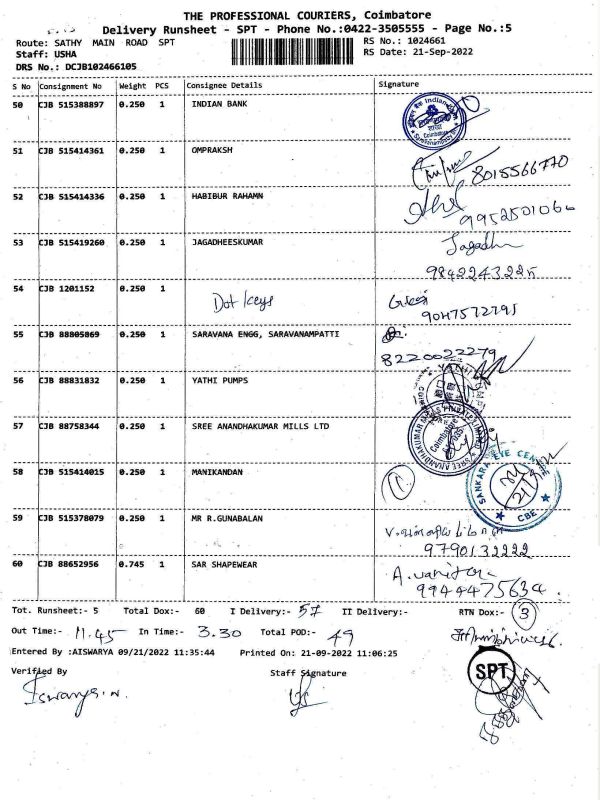 THE PROFESSIONAL COURIERS, Coimbatore
Delivery Runsheet - SPT - Phone No.:0422-3505555 - Page No.:5
Route: SATHY MAIN ROAD SPT
RS No.: 1024661
Staff: USHA
RS Date: 21-Sep-2022
DRS No.: DCJB102466105
S No Consignment No Weight PCS Consignee Details Signature
50 CJB 515388897 0.250 1 INDIAN BANK
51 CJB 515414361 0.250 1 OMPRAKSH
8015566770
52 CJB 515414336 0.250 1 HABIBUR RAHAMN
9952501066
53 CJB 515419260 0.250 1 JAGADHEESKUMAR
Jagadh
9842243225
54 CJB 1201152 0.250 1
Dot keys
9047572795
55 CJB 88805869 0.250 1 SARAVANA ENGG, SARAVANAMPATTI
8220022279
56 CJB 88831832 0.250 1 YATHI PUMPS
57 CJB 88758344 0.250 1 SREE ANANDHAKUMAR MILLS LTD
SREE ANANDHAKUMAR MILLS PRIVATE LIMITED
Coimbatore
58 CJB 515414015 0.250 1 MANIKANDAN
1
SANKARA EYE CENTRE
CBE
59 CJB 515378079 0.250 1 MR R.GUNABALAN
9790132222
60 CJB 88652956 0.745 1 SAR SHAPEWEAR
A. vanitha
9944475634.
Tot. Runsheet:- 5 Total Dox:- 60 I Delivery:- 57 II Delivery:- RTN Dox:- 3
Out Time:- 11.45 In Time:- 3.30 Total POD:- 49
Entered By :AISWARYA 09/21/2022 11:35:44 Printed On: 21-09-2022 11:06:25
Verified By Staff Signature
SPT
Iswarya.N.